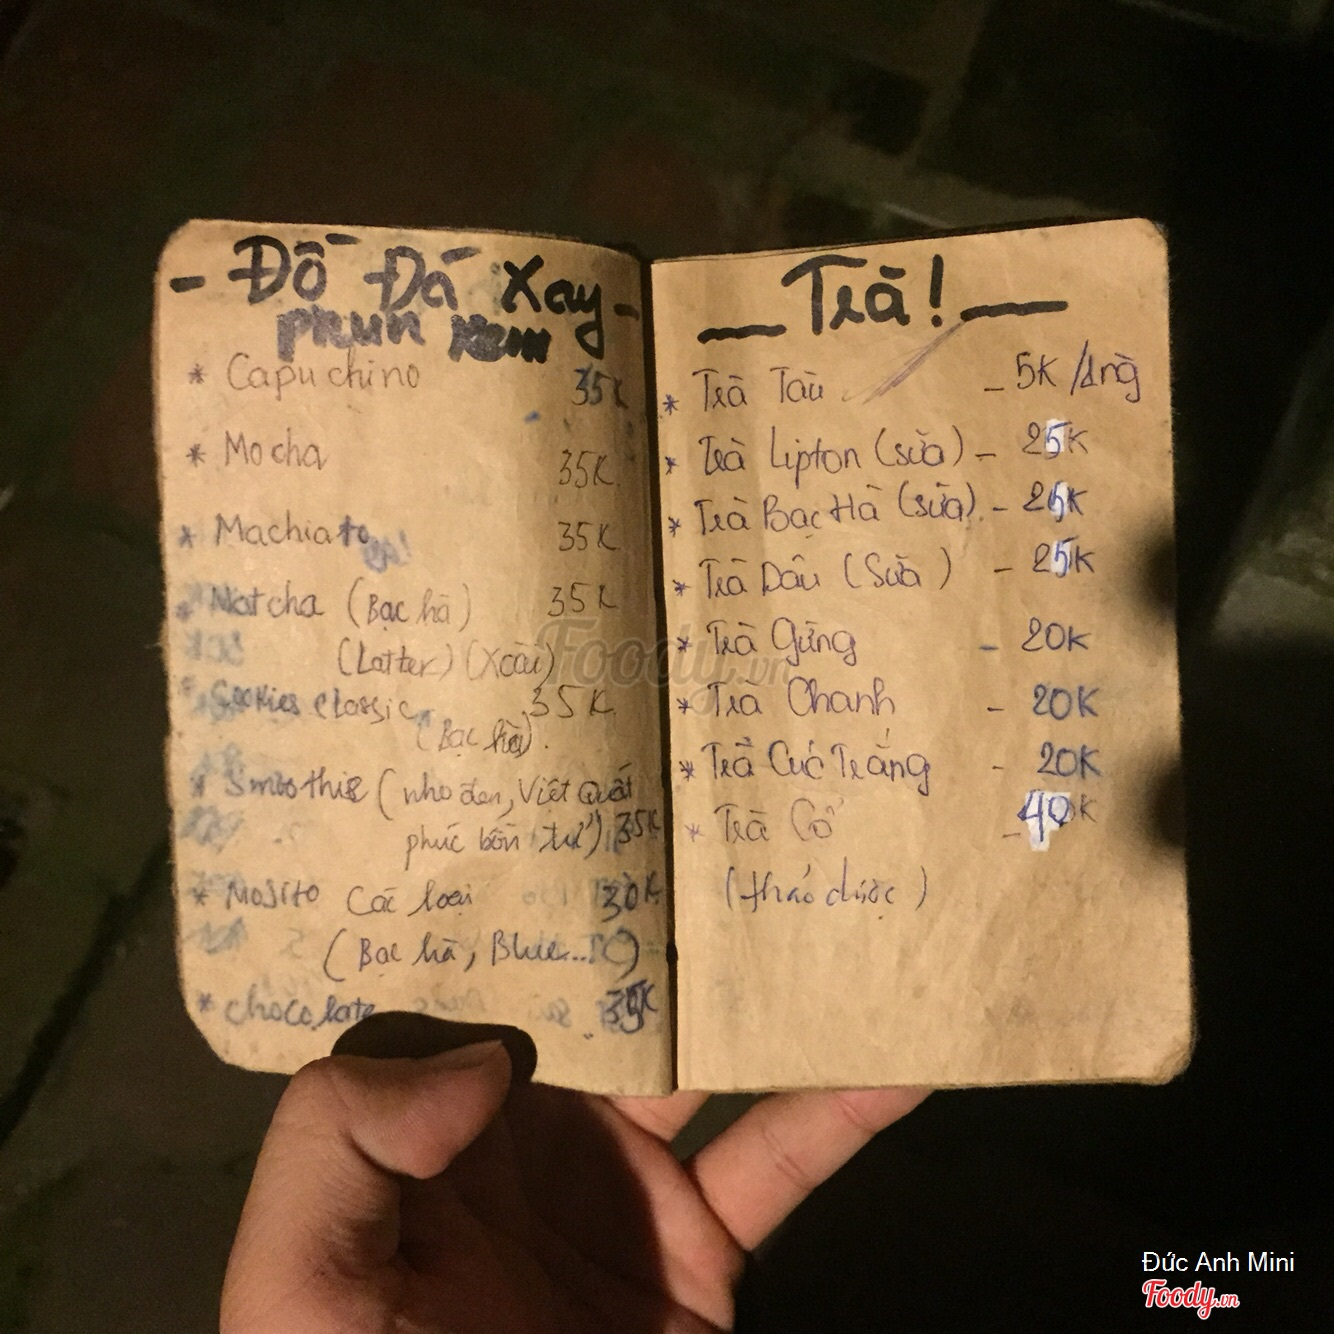 - Đồ Đá Xay -
phun kem
* Capuchino 35K
* Mocha 35K
* Machiato 35K
* Matcha (Bạc hà) 35K
(Latter) (Xoài)
* Cookies classic 35K
(Bạc hà).
* Smoothie (nho đen, Việt Quất
phúc bồn tử) 35K
* Mojito các loại 30K
(Bạc hà, Blue...)
* chocolate 35K
Trà!
* Trà Tàu - 5K /1ng
* Trà Lipton (sữa) - 25K
* Trà Bạc Hà (sữa) - 25K
* Trà Dâu (Sữa) - 25K
* Trà Gừng - 20K
* Trà Chanh - 20K
* Trà Cúc Trắng - 20K
* Trà Cổ - 40K
(thảo dược)
Foody.vn
Đức Anh Mini
Foody.vn